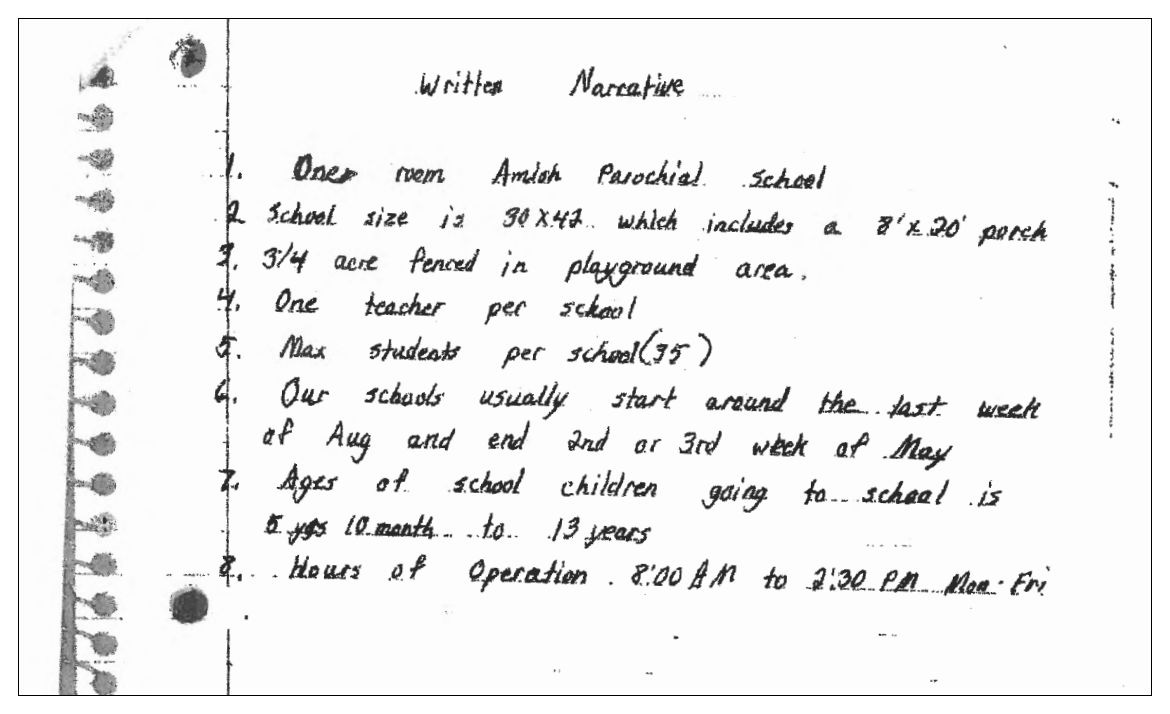 Written Narrative
1. One room Amish Parochial School
2 School size is 30x42 which includes a 8'x20' porch
3. 3/4 acre fenced in playground area.
4. One teacher per school
5. Max students per school (35)
6. Our schools usually start around the last week
of Aug and end 2nd or 3rd week of May
7. Ages of school children going to school is
5 yrs 10 month to 13 years
8. Hours of Operation 8:00 AM to 2:30 PM Mon-Fri